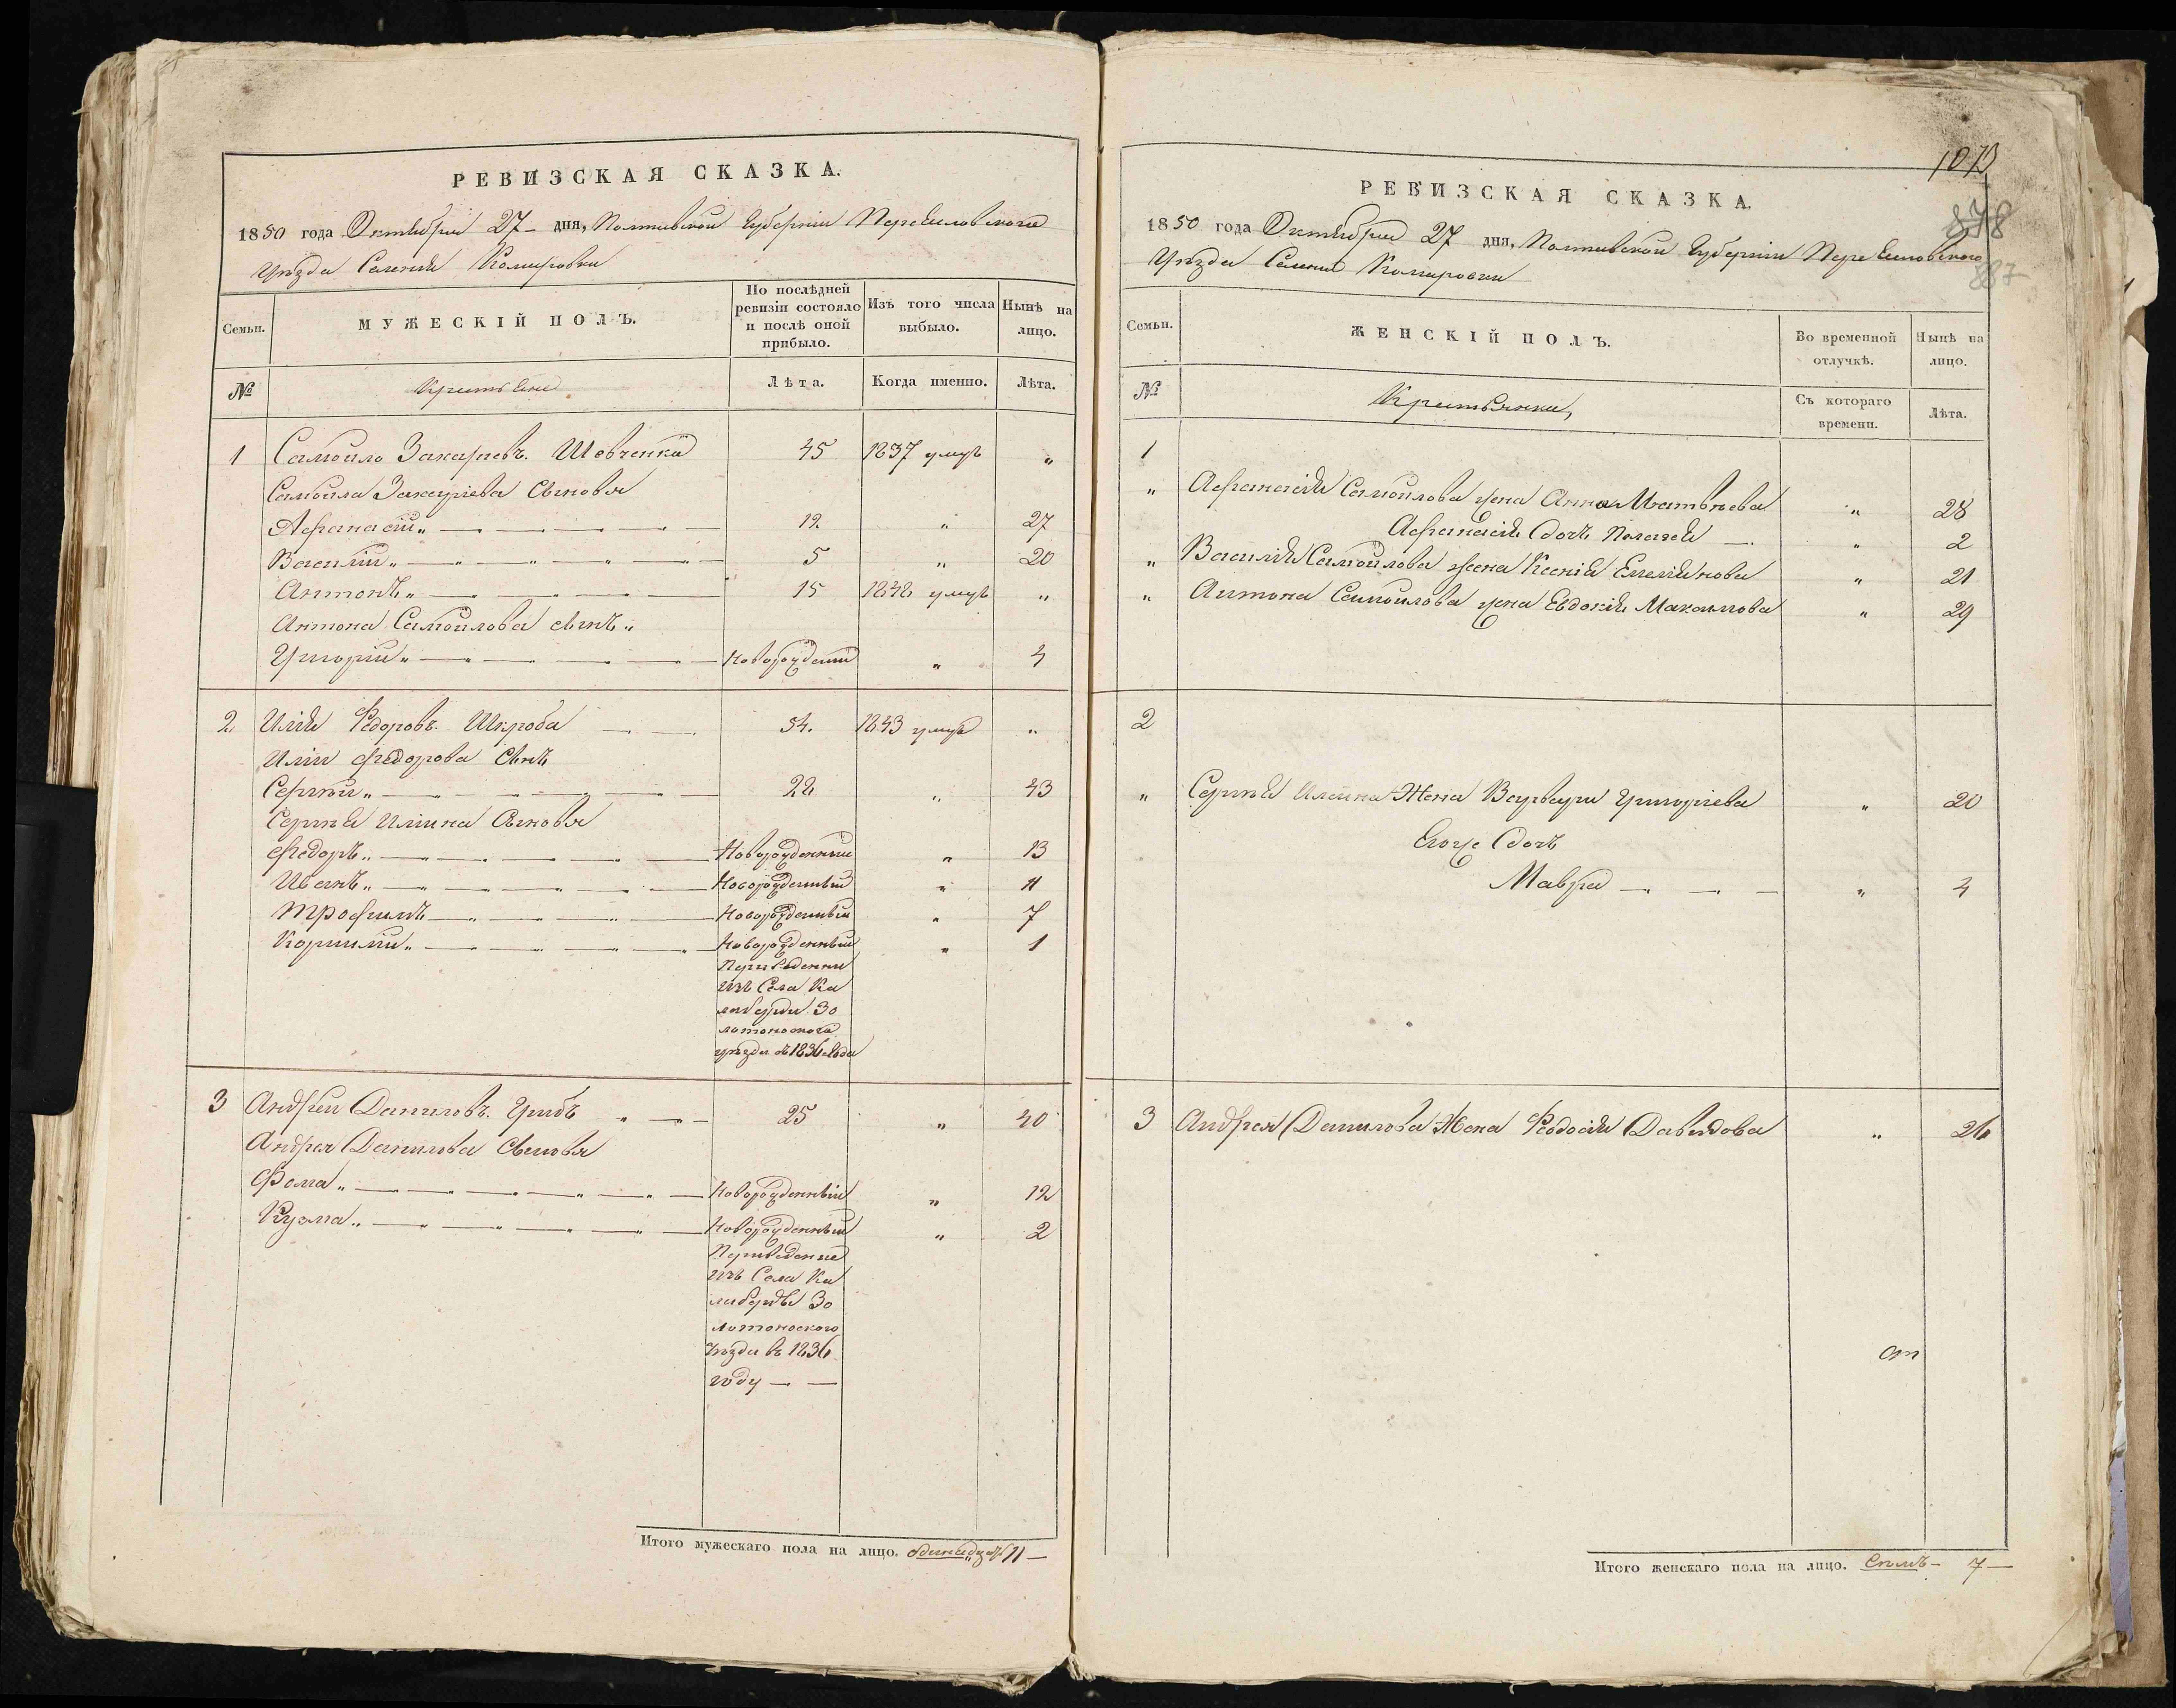 РЕВИЗСКАЯ СКАЗКА.
1850 года Октября 27 - дня, Полтавской Губерніи Переяславского
Уѣзда Селенія Комаровки
Семьи.
МУЖЕСКІЙ ПОЛЪ.
По послѣдней ревизіи состояло и послѣ оной прибыло.
Изъ того числа выбыло.
Нынѣ на лицо.
№
Крестьяне
Лѣта.
Когда именно.
Лѣта.
1 Самойло Захарьевъ. Шевченко 45 1837 умре "
Самойла Захаріева Сыновья
Афанасій " 12 " 27
Василій " 5 " 20
Антонъ " 15 1848 умре "
Антона Самойлова сынъ "
Григорій " Новорожденный " 4
2 Илія Федоровъ. Шкроба 54. 1843 умре "
Иліи Федорова Сынъ
Сергѣй " 28 " 43
Сергѣя Иліина Сыновья
Федоръ " Новорожденный " 13
Иванъ " Новорожденный " 11
Трофимъ Новорожденный " 7
Корнилій " Новорожденный " 1
Переведенни
изъ Села Ка
либерди Зо
лотоноского
уѣзда въ 1836 года
3 Андрей Даниловъ. Грибъ " 25 " 40
Андрея Данилова Сыновья
Фома " Новорожденный " 12
Кузма " Новорожденный " 2
Переведение
изъ Села Ка
либерды Зо
лотоноского
уѣзда въ 1836
году
Итого мужескаго пола на лицо. одинадцать 11 —
1073
878
887
РЕВИЗСКАЯ СКАЗКА.
1850 года Октября 27 дня, Полтавской Губерніи Переяславского
Уѣзда Селенія Комаровки
Семьи.
ЖЕНСКІЙ ПОЛЪ.
Во временной отлучкѣ.
Нынѣ на лицо.
№
Крестьянки
Съ котораго времени.
Лѣта.
1
" Афанасія Самойлова жена Анна Матвѣева " 28
Афанасія Дочь Пелагея — " 2
" Василія Самойлова жена Ксенія Емеліянова " 21
" Антона Самойлова жена Евдокія Максимова " 29
2
" Сергѣя Илііна Жена Варвара Григоріева " 20
Егоже Дочь
Мавра " 4
3 Андрея Данилова Жена Феодосія Давыдова " 26
Итого женскаго пола на лицо. Семь - 7 —